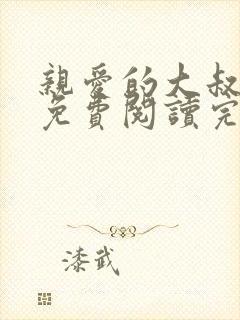 親愛的大叔
免費閱讀完
漆武